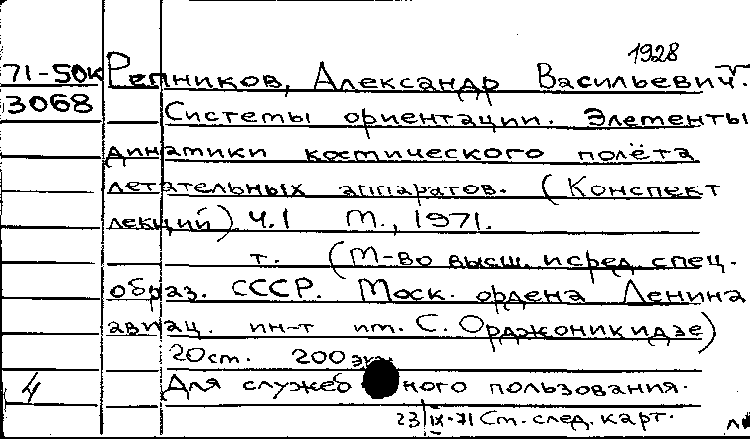 1928
71-50к Репников, Александр Васильевич.
3068 Системы ориентации. Элементы
динамики космического полёта
летательных аппаратов. (Конспект
лекций) Ч.1 М., 1971.
т. (М-во высш. и сред. спец.
образ. СССР. Моск. ордена Ленина
авиац. ин-т им. С. Орджоникидзе)
20 ст. 200 экз.
4 Для служебного пользования.
23/IX-71 Ст. след. карт.